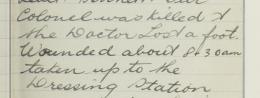 Colonel was killed &
the Doctor Lost a foot.
Wounded about 8.30am
taken up to the
Dressing Station